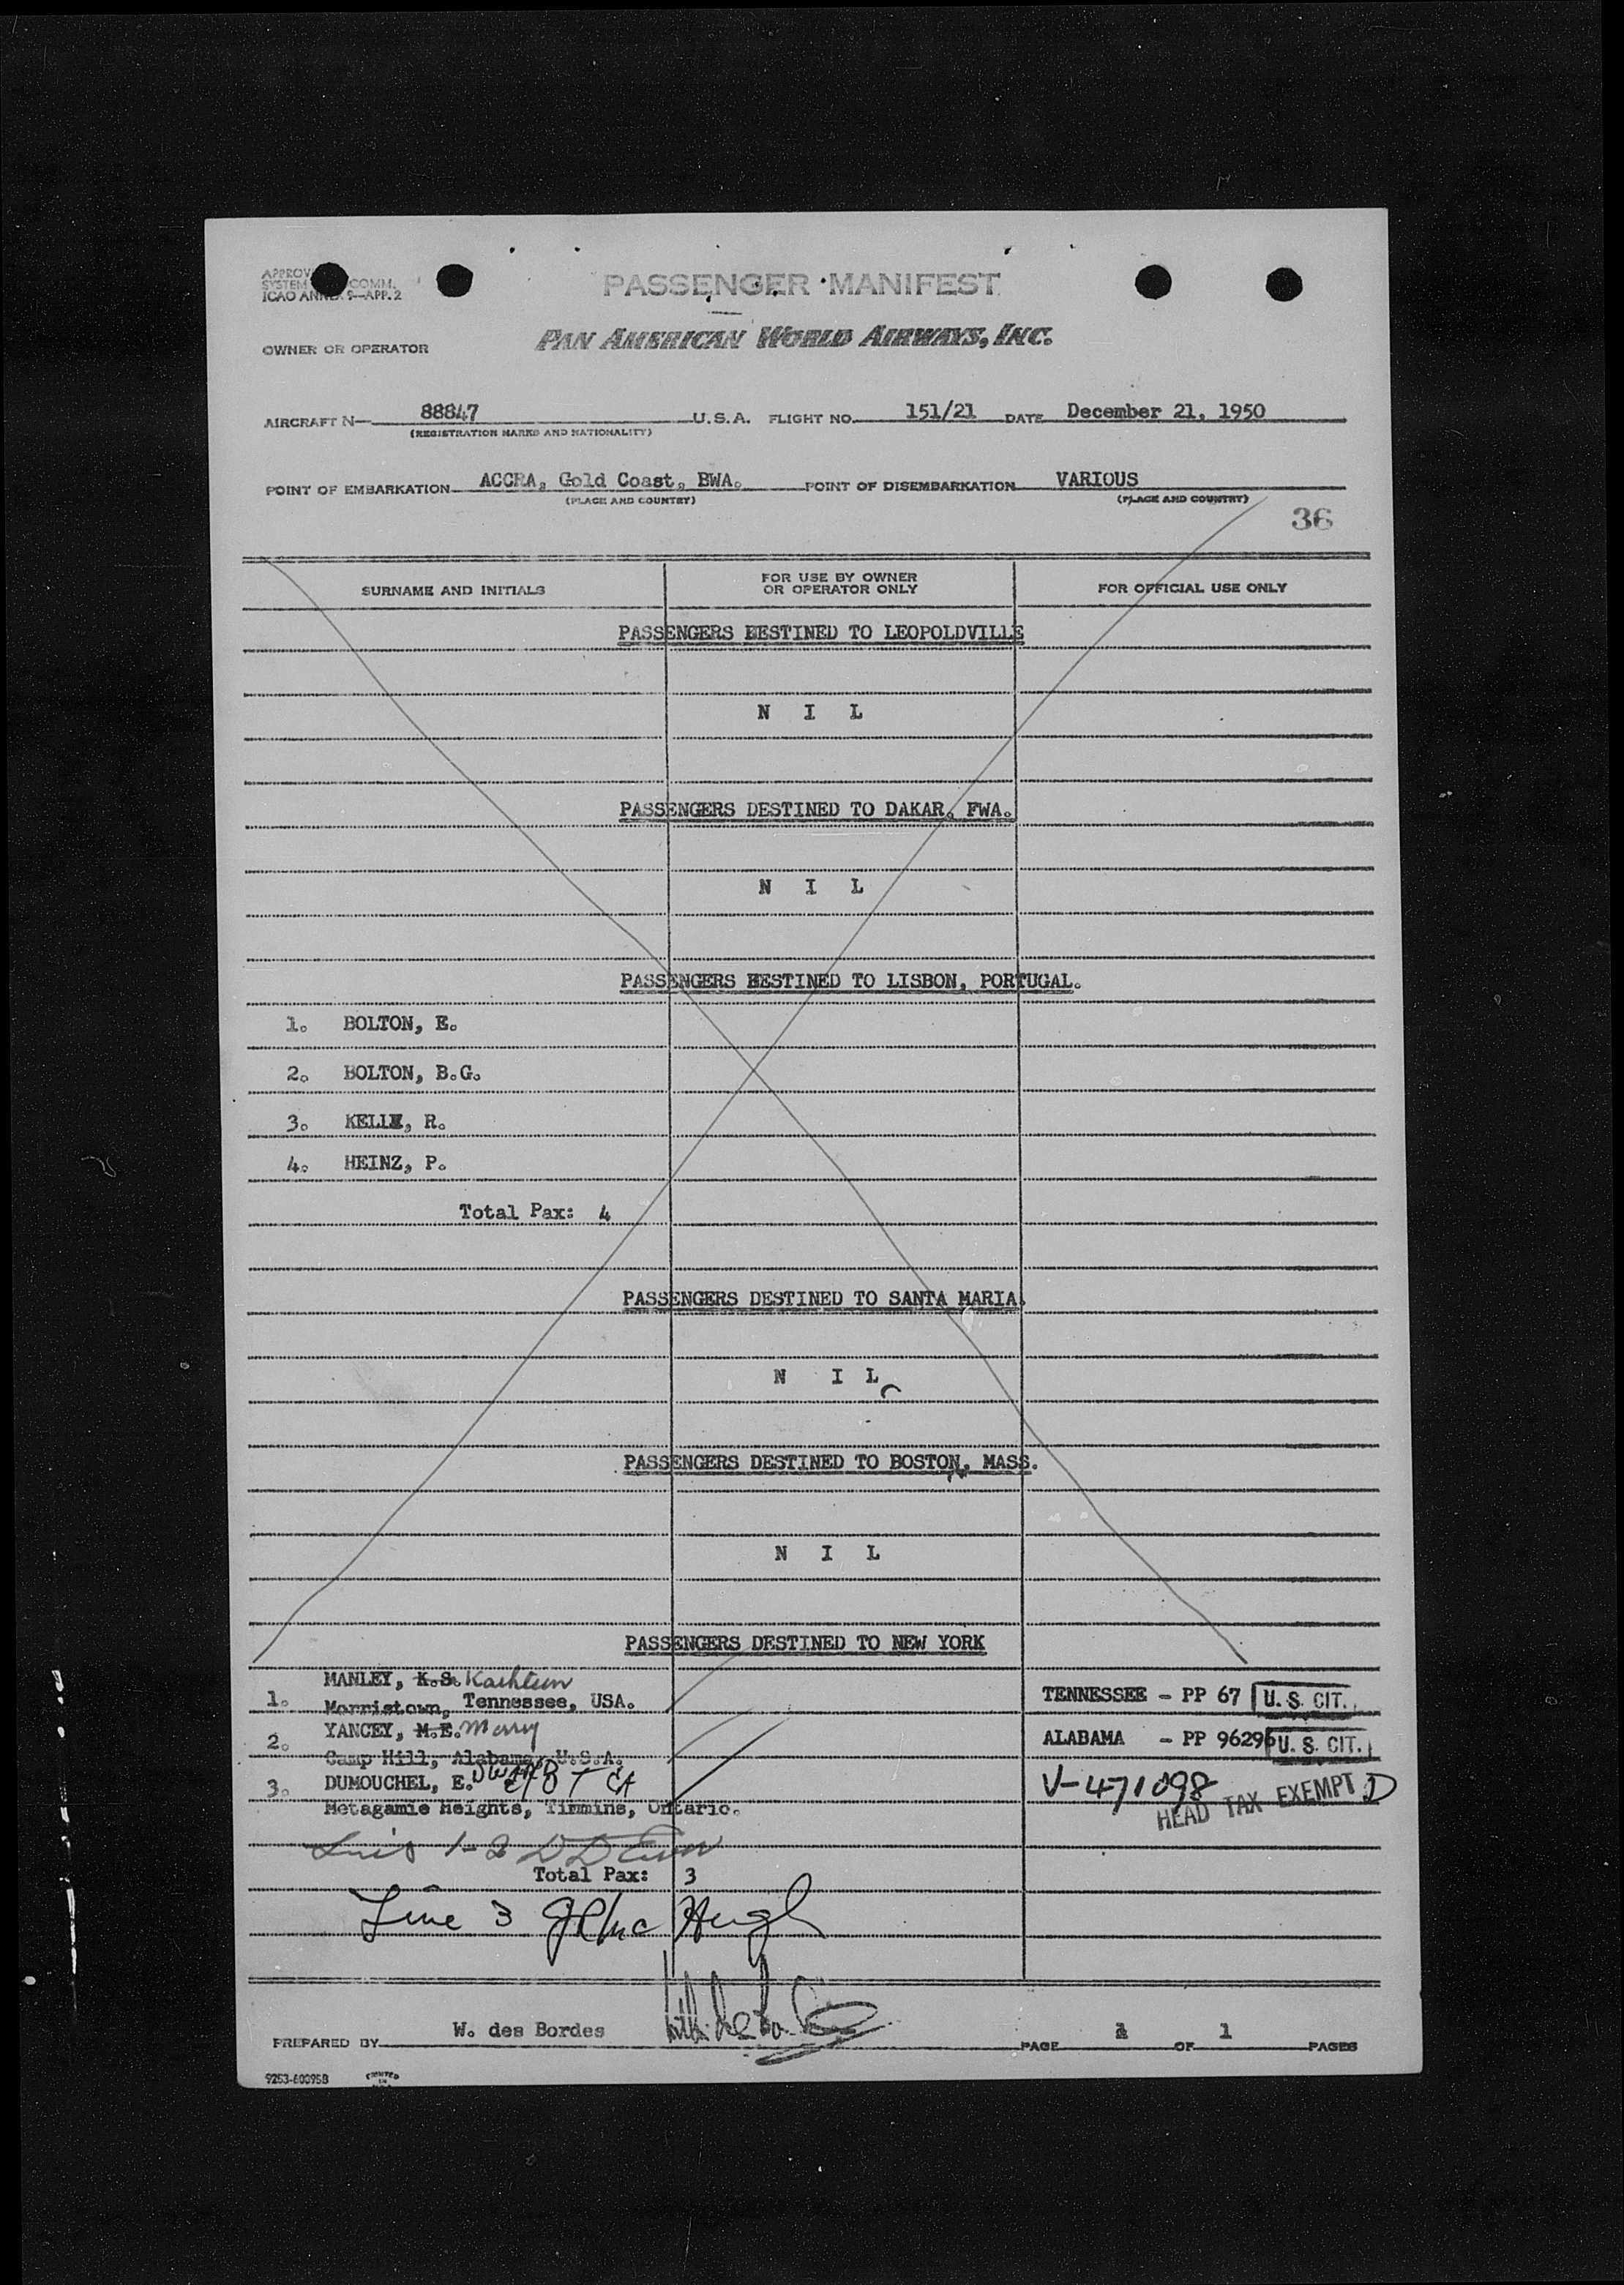 PASSENGER MANIFEST
ICAO ANNEX 9—APP. 2
PAN AMERICAN WORLD AIRWAYS, INC.
OWNER OR OPERATOR
AIRCRAFT N— 88847 U.S.A. FLIGHT NO. 151/21 DATE December 21, 1950
(REGISTRATION MARKS AND NATIONALITY)
POINT OF EMBARKATION ACCRA, Gold Coast, BWA. POINT OF DISEMBARKATION VARIOUS
(PLACE AND COUNTRY) (PLACE AND COUNTRY)
36
SURNAME AND INITIALS FOR USE BY OWNER OR OPERATOR ONLY FOR OFFICIAL USE ONLY
PASSENGERS DESTINED TO LEOPOLDVILLE
N I L
PASSENGERS DESTINED TO DAKAR, FWA.
N I L
PASSENGERS DESTINED TO LISBON, PORTUGAL.
1. BOLTON, E.
2. BOLTON, B.G.
3. R.
4. HEINZ, P.
Total Pax: 4
PASSENGERS DESTINED TO SANTA MARIA.
N I L
PASSENGERS DESTINED TO BOSTON, MASS.
N I L
PASSENGERS DESTINED TO NEW YORK
MANLEY, K.S. Kathleen
1. Morristown, Tennessee, USA. TENNESSEE - PP 67 U. S. CIT.
YANCEY, M.E. Mary
2. Camp Hill, Alabama, U.S.A. ALABAMA - PP 96296 U. S. CIT.
3. DUMOUCHEL, E. V-471098 D
Metagamie Heights, Timmins, Ontario. HEAD TAX EXEMPT
1-2
Total Pax: 3
Line 3
PREPARED BY W. des Bordes PAGE 1 OF 1 PAGES
9253-60095B PRINTED IN